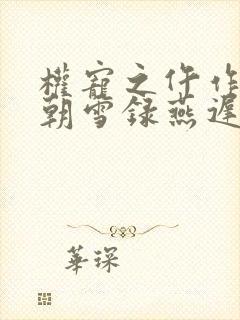 權寵之仵作
朝雪録燕遲
華琛